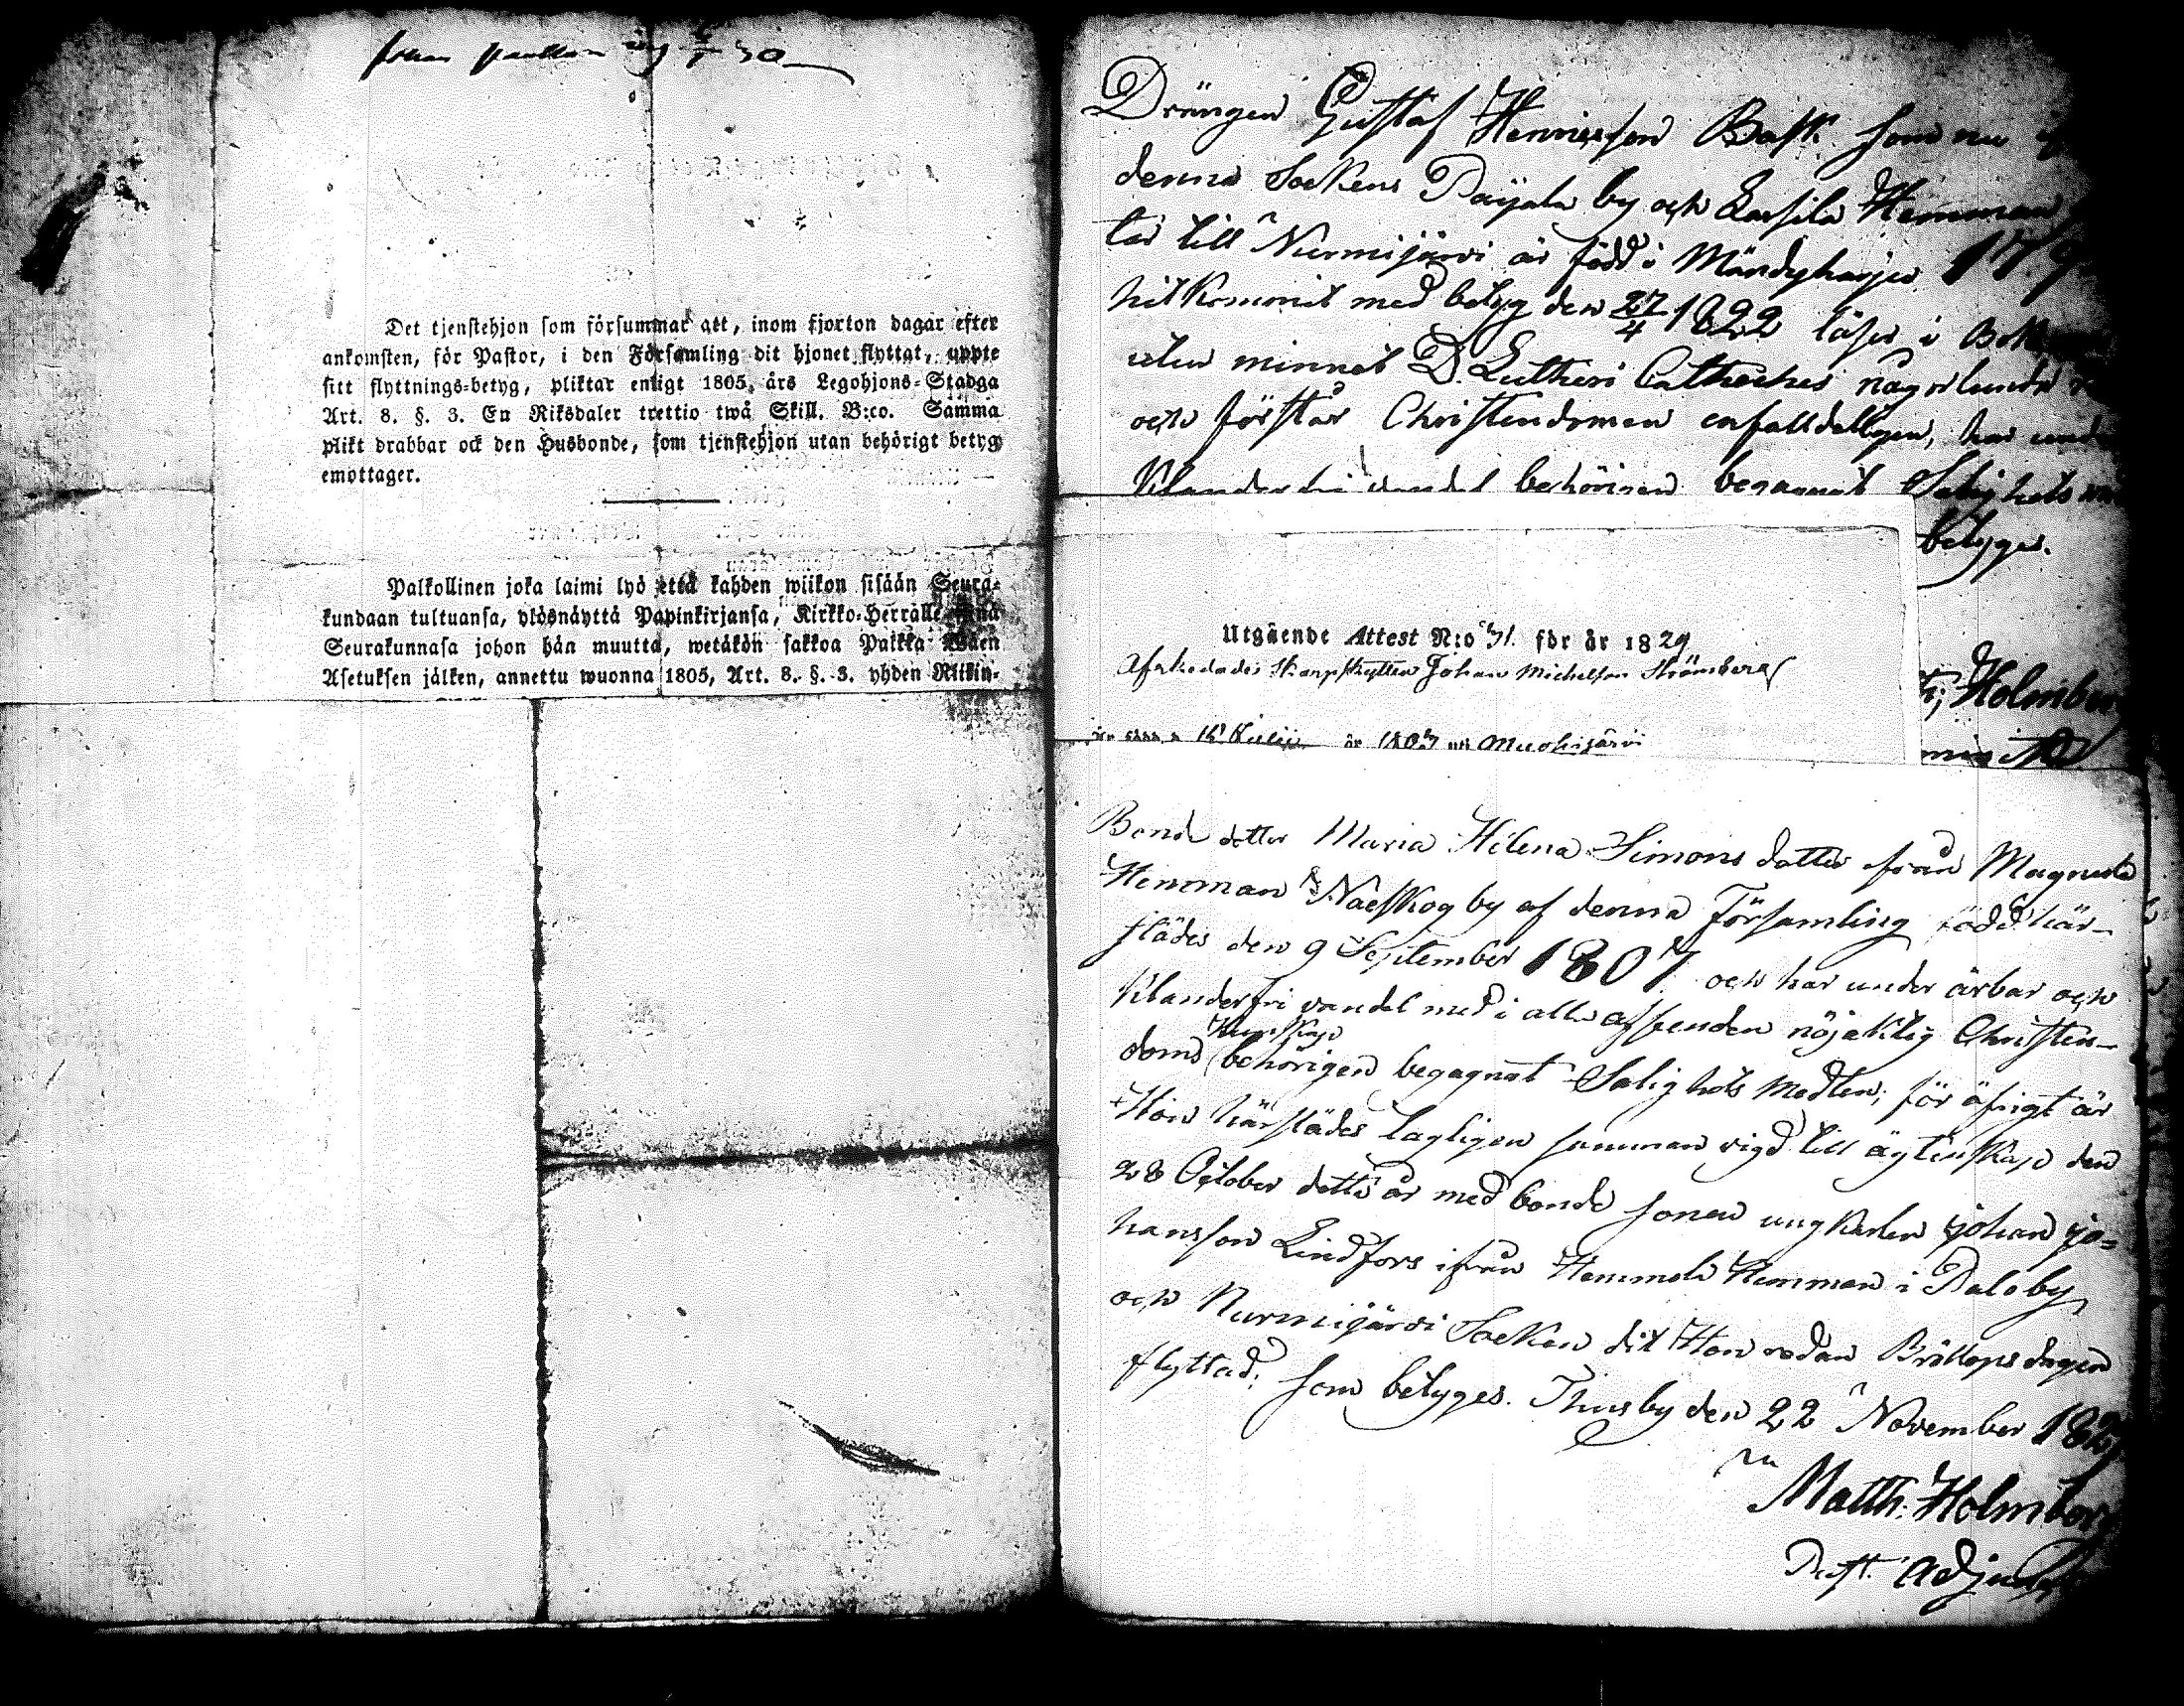 Johan
Det tjenstehjon som försummar att, inom fjorton dagar efter
ankomsten, för Pastor, i den Församling dit hjonet flyttat, uppte
sitt flyttnings-betyg, pliktar enligt 1805 års Legohjons-Stadga
Art. 8. §. 3. En Riksdaler trettio twå Skill. B:co. Samma
plikt drabbar ock den Husbonde, som tjenstehjon utan behörigt betyg
emottager.
Palkollinen joka laimi lyö että kahden wiikon sisään Seura-
kundaan tultuansa, ylösnäyttä Papinkirjansa, Kirkko-Herralle
Seurakunnasa johon hän muutta, wetäkön sakkoa Palkka Wäen
Asetuksen jälken, annettu wuonna 1805, Art. 8. §. 3. yhden Riikin-
Drängen Gustaf Henricsson Bask som nu
denna Sockens Pajala by och Lassila Hemman
tar till Nurmijärvi är född i Mändyharju 17
hitkommit med betyg den 27/4 1822 läser i Bok
utur minnet D. Lutheri Catheches någorlunda
och förstår Christendomen enfalldeligen, har under
Klanderfri vandel behörigen begagnat Salighets
betyges.
Utgående Attest N:o 31. för år 1829
Afskedade Skarpskytten Johan Michelson Strömberg
Holmber
Julii år 1803 Muohijärvi
Bond dotter Maria Helena Simons dotter från Magnula
Hemman i Naeskog by af denna Församling född här-
städes den 9 September 1807 och har under ärbar och
Klanderfri vandel med i alla afseenden nöjaktig Christen-
doms Kunskap behörigen begagnat Salighets Medlen; för öfrigt är
Hon härstädes lagligen samman vigd till ägtenskap den
28 October detta år med bonde sonen ungkarlen Johan Jo-
hansson Lindfors ifrån Hemmola Hemman i Palo by
och Nurmijärvi Socken dit Hon redan Bröllops dagen
flyttad; som betyges. Thusby den 22 November 182
Matth. Holmberg
Past. Adjunct